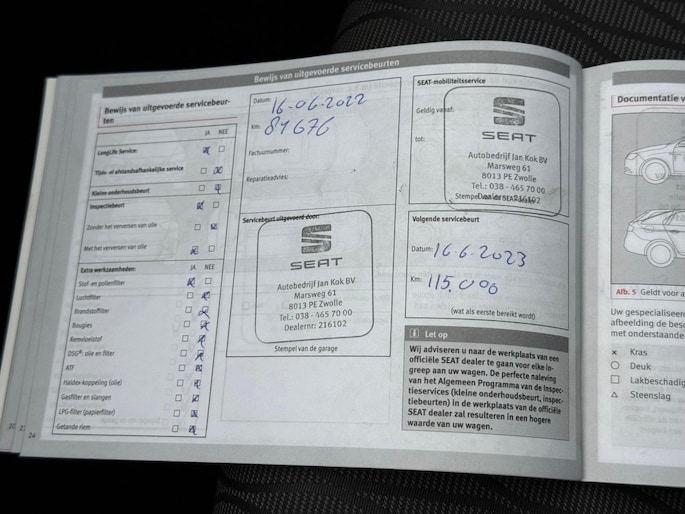 Bewijs van uitgevoerde servicebeurten
Bewijs van uitgevoerde servicebeur-
ten
JA NEE
LongLife Service:
Tijds- of afstandsafhankelijke service
Kleine onderhoudsbeurt
Inspectiebeurt
Zonder het verversen van olie
Met het verversen van olie
Extra werkzaamheden: JA NEE
Stof- en pollenfilter
Luchtfilter
Brandstoffilter
Bougies
Remvloeistof
DSG®: olie en filter
ATF
Haldex-koppeling (olie)
Gasfilter en slangen
LPG-filter (papierfilter)
Getande riem
20
24
Datum: 16-06-2022
Km: 81676
Factuurnummer:
Reparatieadvies:
Servicebeurt uitgevoerd door:
SEAT
Autobedrijf Jan Kok BV
Marsweg 61
8013 PE Zwolle
Tel.: 038 - 465 70 00
Dealernr: 216102
Stempel van de garage
SEAT-mobiliteitsservice
Geldig vanaf:
tot:
SEAT
Autobedrijf Jan Kok BV
Marsweg 61
8013 PE Zwolle
Tel.: 038 - 465 70 00
Volgende servicebeurt
Datum: 16.6.2023
Km: 115.000
(wat als eerste bereikt wordt)
i Let op
Wij adviseren u naar de werkplaats van een
officiële SEAT dealer te gaan voor elke in-
greep aan uw wagen. De perfecte naleving
van het Algemeen Programma van de Inspec-
tieservices (kleine onderhoudsbeurt, inspec-
tiebeurten) in de werkplaats van de officiële
SEAT dealer zal resulteren in een hogere
waarde van uw wagen.
Documentatie v
Afb. 5 Geldt voor a
Uw gespecialiseer
afbeelding de besc
met onderstaande
× Kras
○ Deuk
□ Lakbeschadig
△ Steenslag